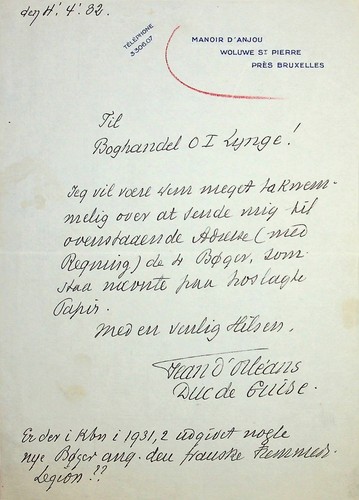 den 4'. 4'. 32.
TÉLÉPHONE
3.308.07
MANOIR D'ANJOU
WOLUWE ST PIERRE
PRÈS BRUXELLES
Til
Boghandel O I Lynge!
Jeg vil være Dem meget taknem-
melig over at sende mig til
ovenstaaende Adresse (med
Regning) de 4 Bøger, som
staa nævnte paa hoslagte
Papir.
Med en venlig Hilsen,
Jean d'Orléans
Duc de Guise.
Er der i Kbn i 1931,2 udgivet nogle
nye Bøger ang. den franske Fremmed-
Legion??